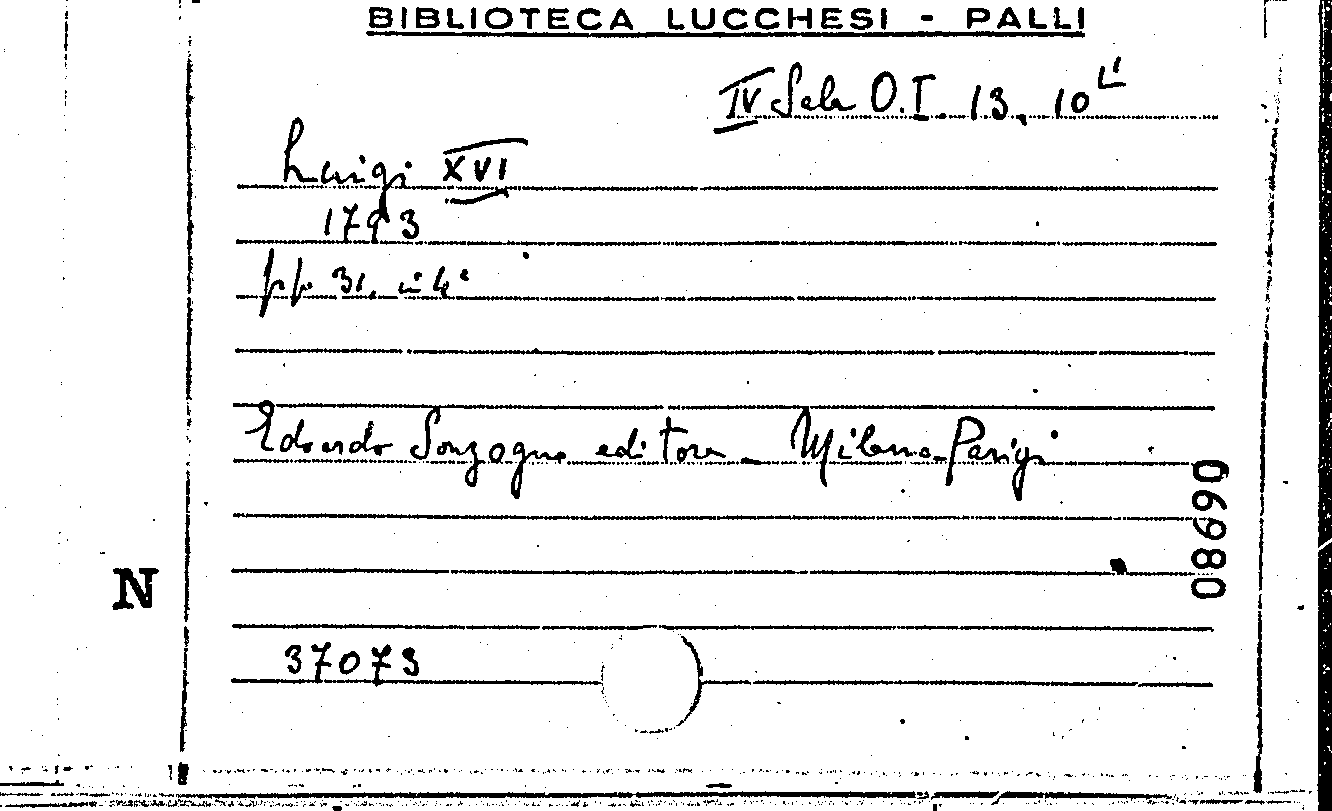 BIBLIOTECA LUCCHESI - PALLI
IV Sala O.I. 13, 10
Luigi XVI
1793
pp. 31. in 4°
Edoardo Sonzogno editore - Milano-Parigi
08990
N
37073